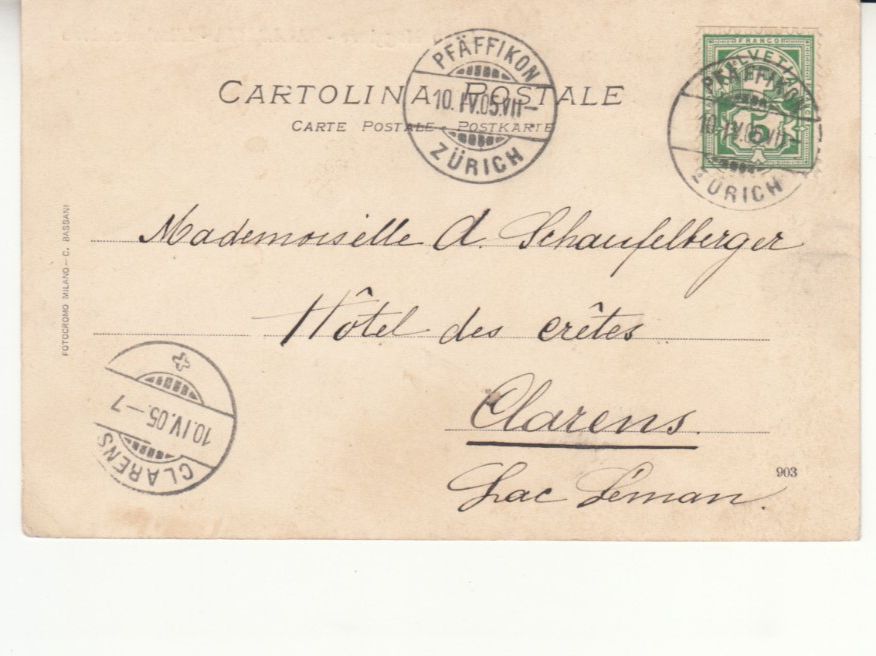 CARTOLINA POSTALE
CARTE POSTALE - POSTKARTE
PFÄFFIKON
10.IV.05.VII-
ZÜRICH
FRANCO
HELVETIA
5
PFÄFFIKON
10.IV.05.VII-
ZÜRICH
Mademoiselle A. Schaufelberger
Hôtel des crêtes
Clarens.
Lac Léman.
903
FOTOCROMO MILANO - C. BASSANI
10.IV.05.-7
CLARENS